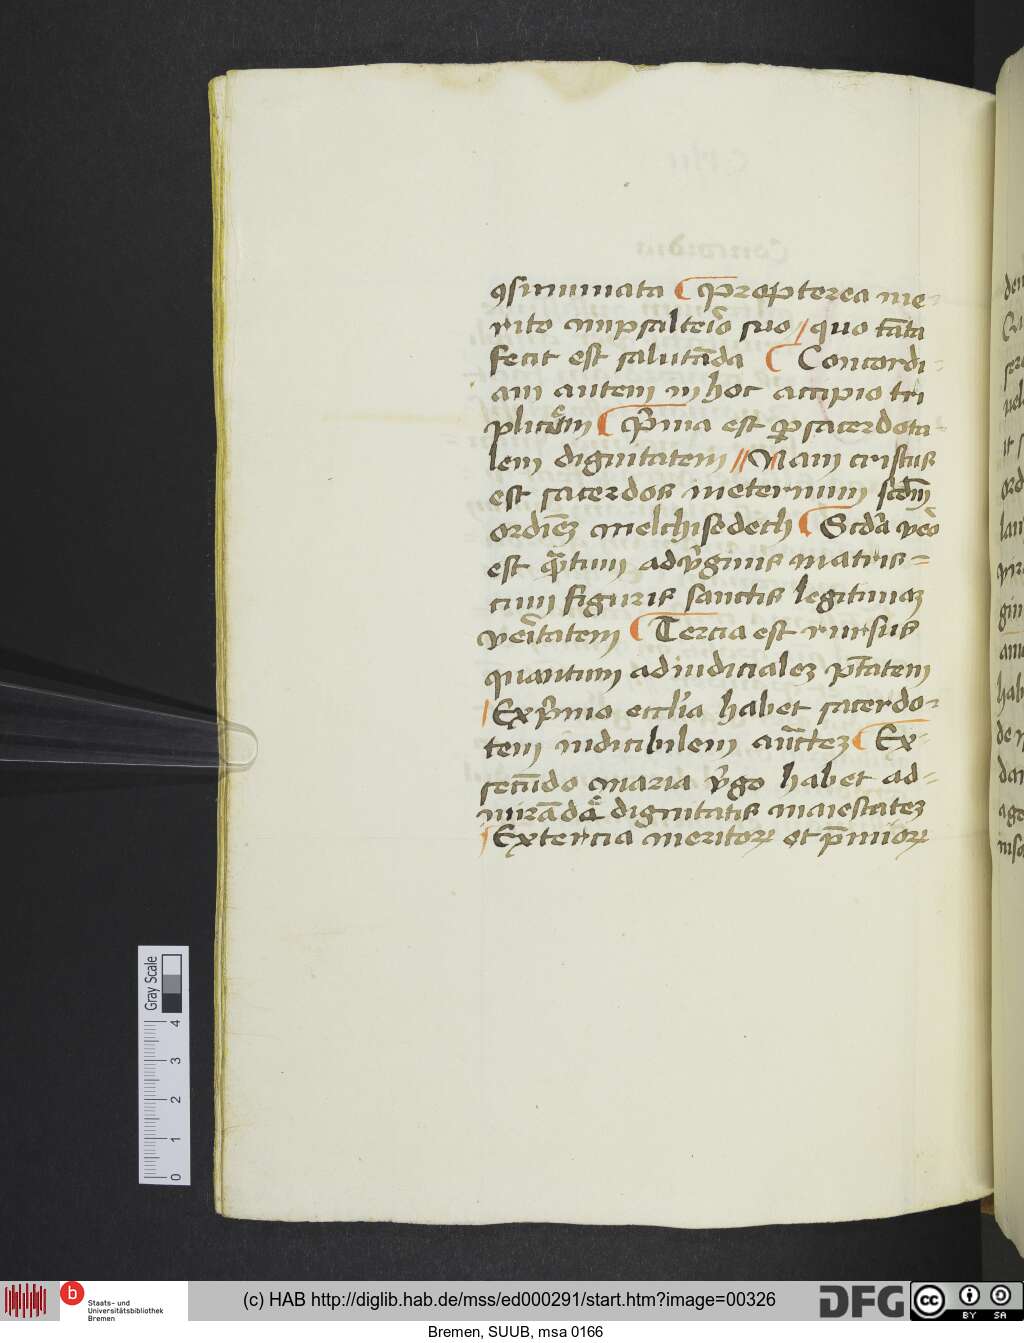 ꝯsummata Propterea me-
rito in psalteio̅ suo quo ta̅ta
fecit est saluta̅da Concordi-
am autem in hoc accipio tri
plice̅m Pͥma est ꝑ sacerdota-
lem dignitatem Nam cristus
est sacerdos in eternum scdm̅
ordie̅ꝫ melchisedech Scda̅ ve̅o
est qᷓtum ad vͥginis matris=
cum figuris sanctis legitimaꝫ
veitatem̅ Tercia est rursus
quantum ad iudicialeꝫ pt̅atem
Ex pͥmo eccl̅ia habet sacerdo-
tem indicibilem auctteꝫ Ex
secu̅do maria vͥgo habet ad-
mira̅da̅ dignitatis maiestateꝫ
Ex tercia meritoꝝ et p̅mioꝝ
Gray Scale
4
3
2
1
0
Staats- und
Universitätsbibliothek
Bremen
(c) HAB http://diglib.hab.de/mss/ed000291/start.htm?image=00326
DFG
cc BY SA
Bremen, SUUB, msa 0166